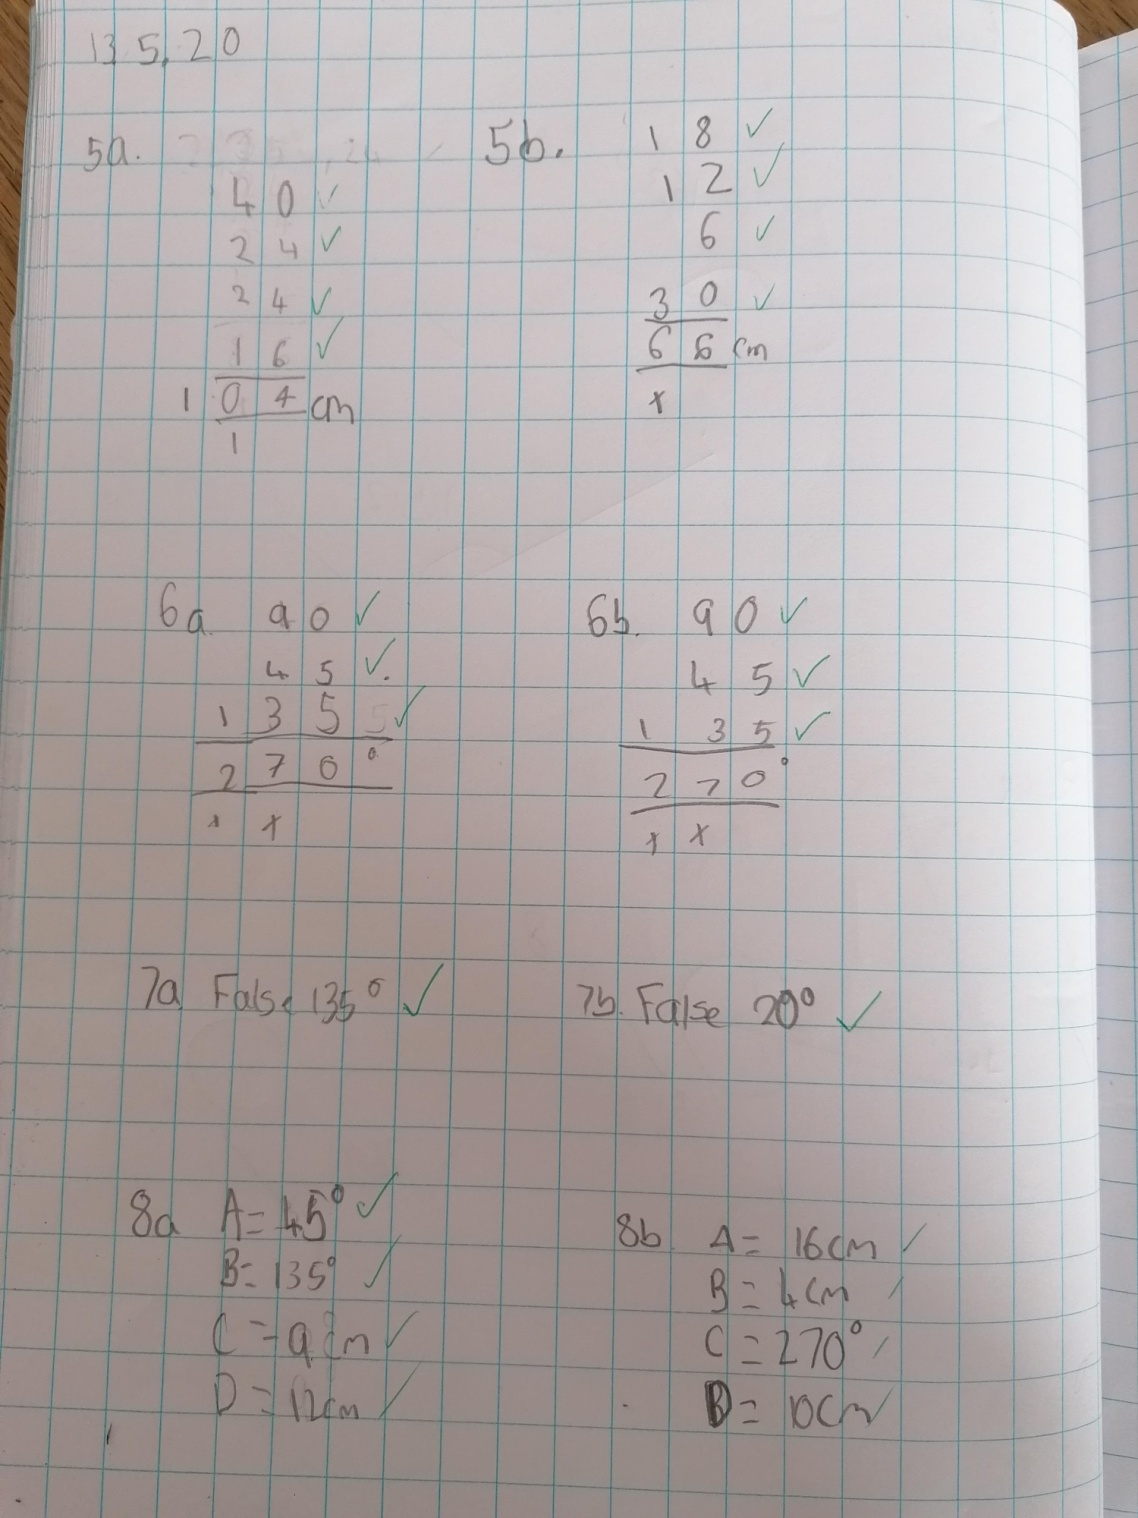 13.5.20
5a.
4 0 ✓
2 4 ✓
2 4 ✓
1 6 ✓
1 0 4 cm
1
5b.
1 8 ✓
1 2 ✓
6 ✓
3 0 ✓
6 6 cm
1
6a 90 ✓
4 5 ✓.
1 3 5 ✓
2 7 0°
1 1
6b. 90 ✓
4 5 ✓
1 3 5 ✓
2 7 0°
1 1
7a False 135° ✓
7b. False 20° ✓
8a A= 45° ✓
B= 135° ✓
C = 9cm ✓
D = 12cm ✓
8b A= 16cm ✓
B= 4cm ✓
C= 270° ✓
D= 10cm ✓